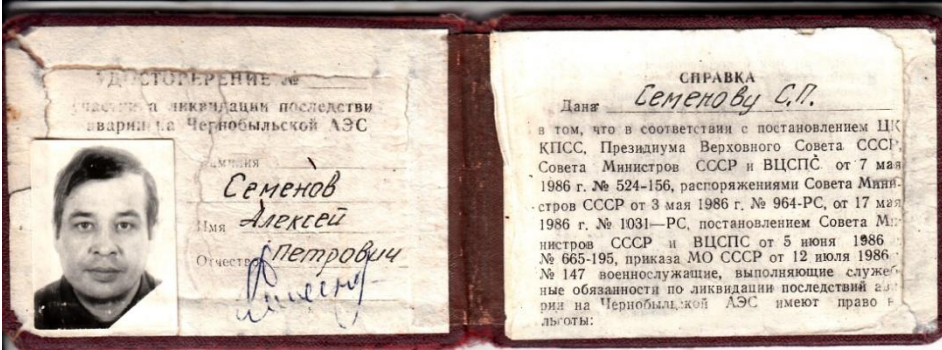 УДОСТОВЕРЕНИЕ №
участника ликвидации последстви
аварии на Чернобыльской АЭС
Фамилия
Семенов
Имя Алексей
Отчество Петрович
СПРАВКА
Дана Семенову С.П.
в том, что в соответствии с постановлением ЦК
КПСС, Президиума Верховного Совета СССР,
Совета Министров СССР и ВЦСПС от 7 мая
1986 г. № 524-156, распоряжениями Совета Мини-
стров СССР от 3 мая 1986 г. № 964-РС, от 17 мая
1986 г. № 1031—РС, постановлением Совета Ми-
нистров СССР и ВЦСПС от 5 июня 1986
№ 665-195, приказа МО СССР от 12 июля 1986
№ 147 военнослужащие, выполняющие служеб-
ные обязанности по ликвидации последствий ава-
рии на Чернобыльской АЭС имеют право н
льготы: